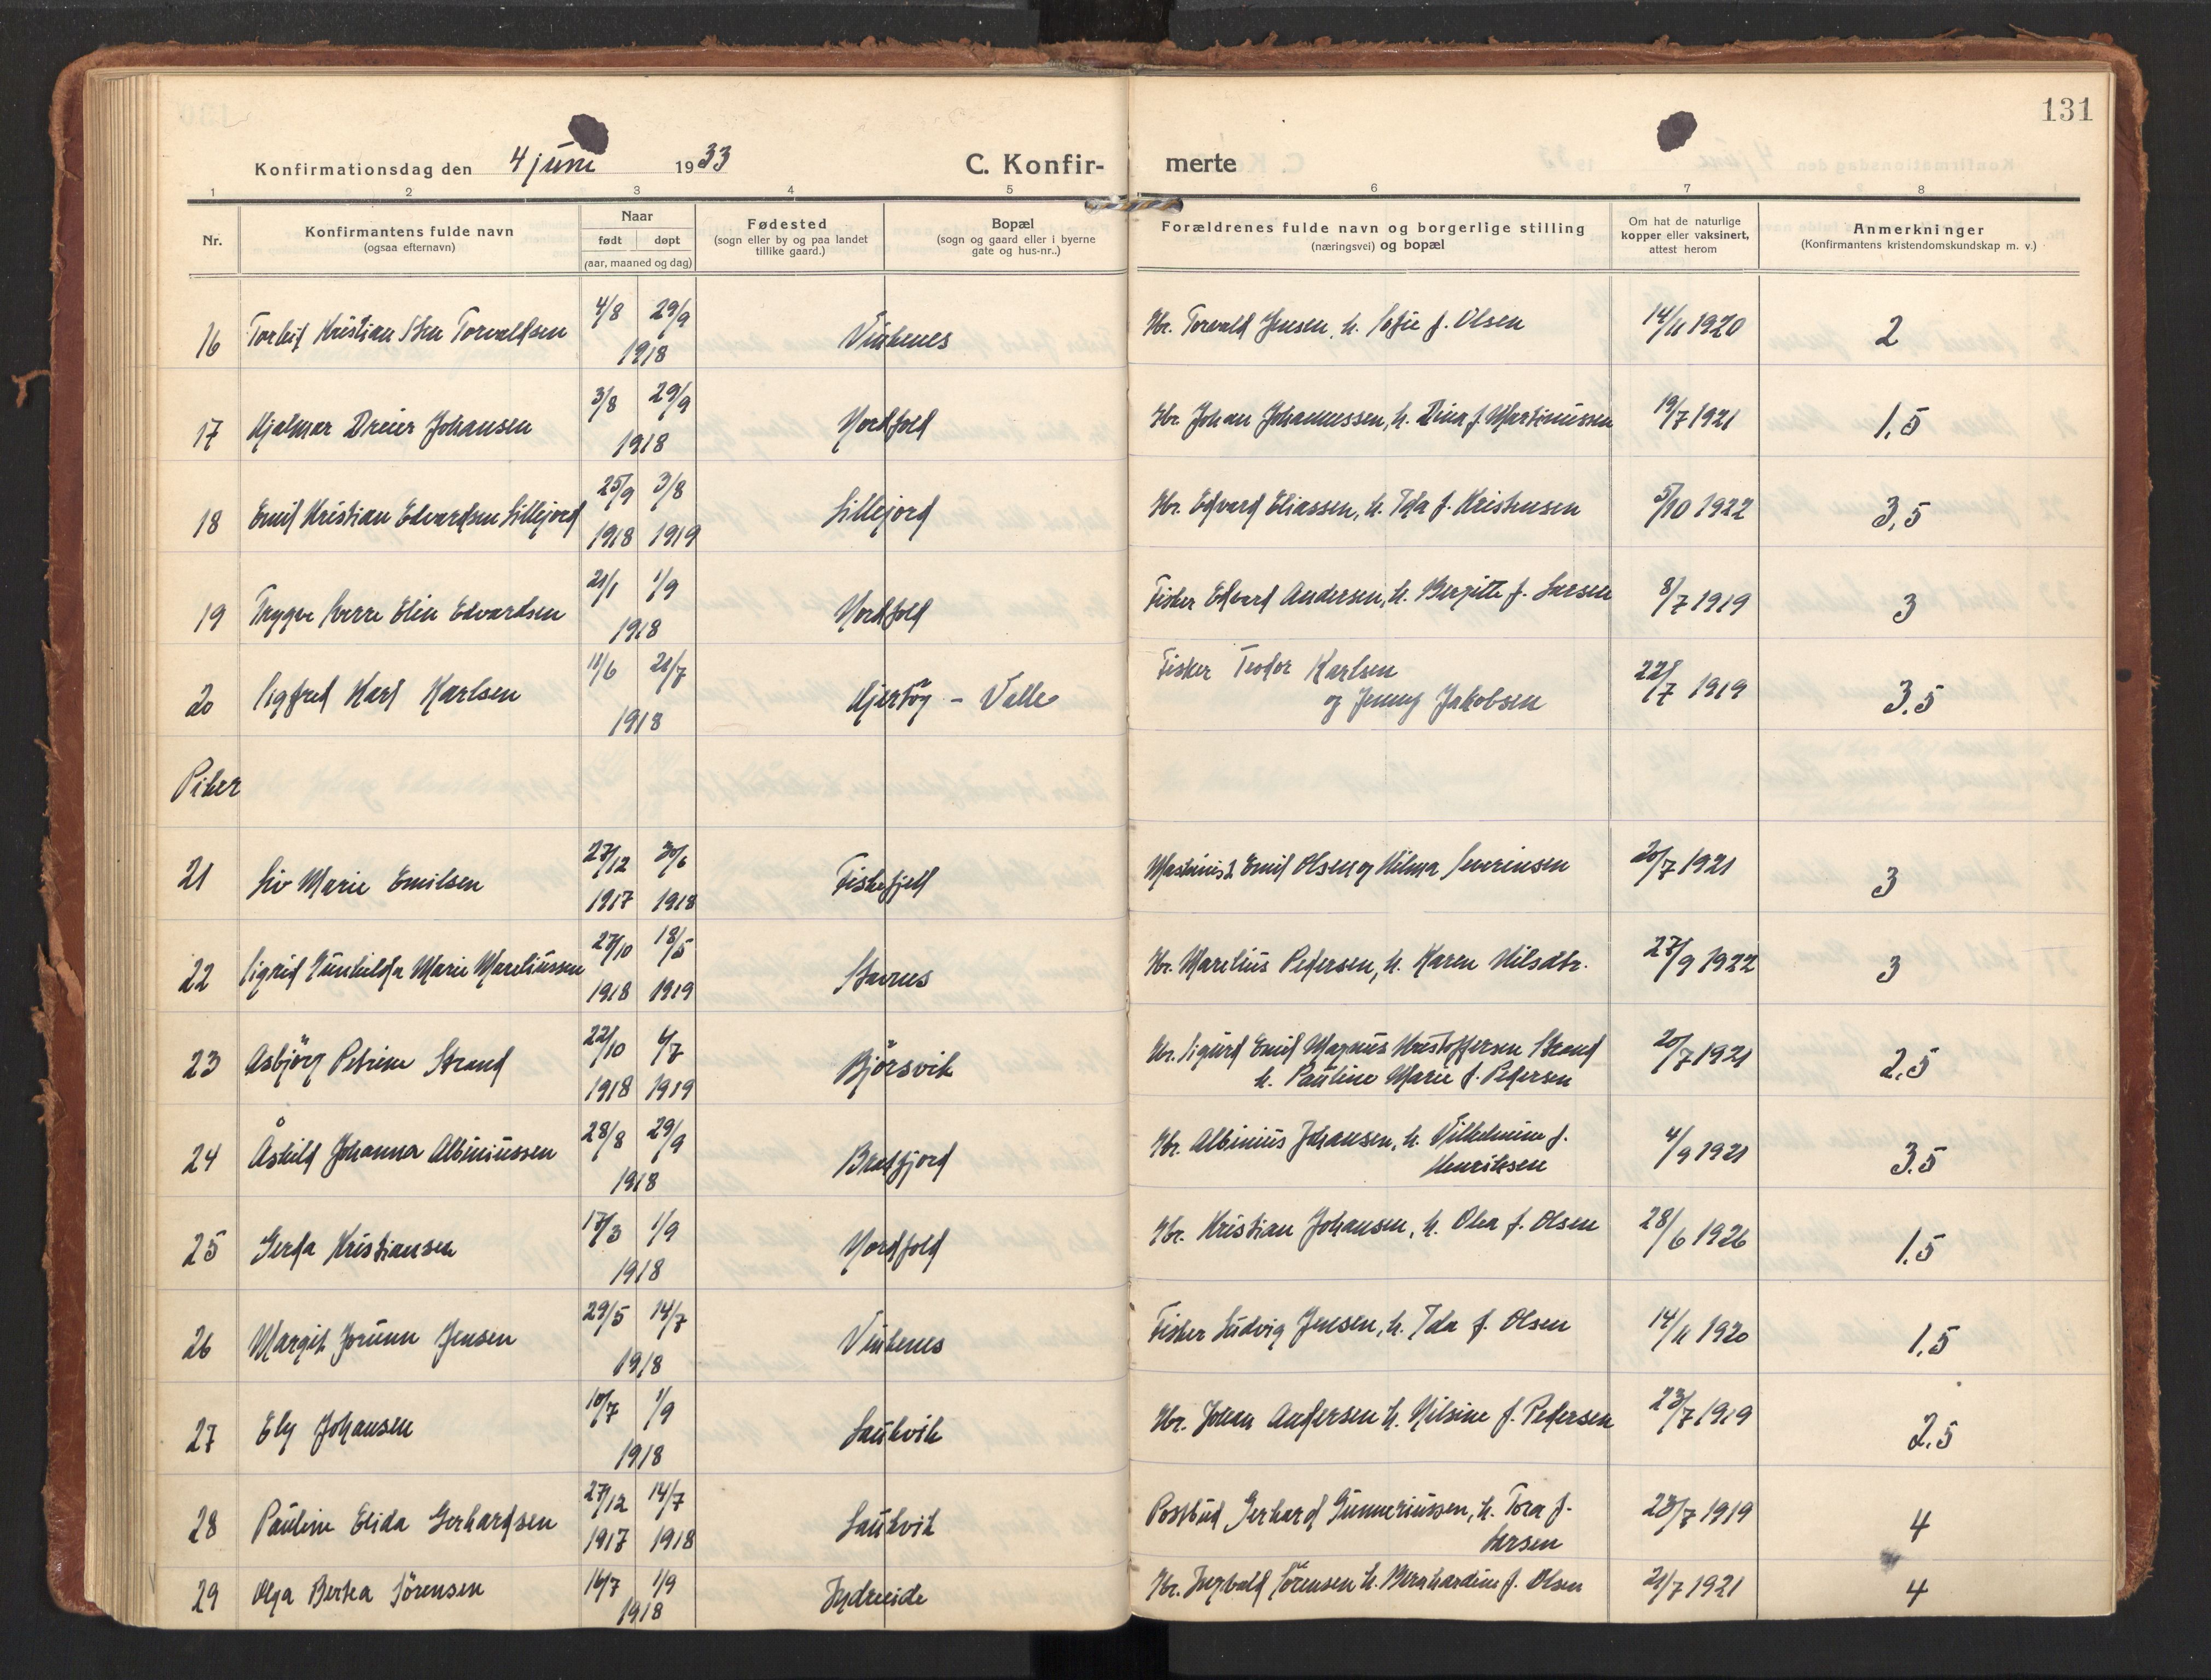 131
Konfirmationsdag den 4 juni 1933 C. Konfir- merte
1 2 3 4 5 6 7 8
Nr.
Konfirmantens fulde navn
(ogsaa efternavn)
Naar
født døpt
(aar, maaned og dag)
Fødested
(sogn eller by og paa landet
tillike gaard.)
Bopæl
(sogn og gaard eller i byerne
gate og hus-nr..)
Forældrenes fulde navn og borgerlige stilling
(næringsvei) og bopæl
Om hat de naturlige
kopper eller vaksinert,
attest herom
Anmerkninger
(Konfirmantens kristendomskundskap m. v.)
16 Torleif Kristian Sten Torvaldsen 4/8 29/9 1918 Vinkenes Gbr. Torvald Jensen, h. Sofie f. Olsen 14/11 1920 2
17 Hjalmar Dreier Johansen 3/8 29/9 1918 Nordfold Gbr. Johan Johannessen, h. Dina f. Martinussen 19/7 1921 1,5
18 Emil Kristian Edvardsen Lillejord 25/9 1918 3/8 1919 Lillejord Gbr. Edvard Eliassen, h. Ida f. Kristensen 5/10 1922 3,5
19 Trygve Sverre Elin Edvardsen 21/1 1/9 1918 Nordfold Fisker Edvard Andersen, h. Bergitte f. Larsen 8/7 1919 3
20 Sigfred Karl Karlsen 11/6 21/7 1918 Kjertøy - Valle Fisker Teodor Karlsen
og Jenny Jakobsen 22/7 1919 3.5
Piker
21 Liv Marie Emilsen 27/12 1917 30/6 1918 Fiskefjell Maskinist Emil Olsen og Hilma Severinsen 20/7 1921 3
22 Sigrid Gunhilda Marie Mareliussen 27/10 1918 18/5 1919 Stavnes Gbr. Marelius Pedersen, h. Karen Nilsdtr. 27/9 1922 3
23 Asbjörg Petrine Strand 22/10 1918 6/7 1919 Björsvik Gbr. Sigurd Emil Magnus Kristoffersen Strand
h. Pauline Marie f. Pedersen 20/7 1921 2,5
24 Åshild Johanna Albiniussen 28/8 29/9 1918 Bratfjord Gbr. Albinius Johansen, h. Vilhelmine f.
Henriksen 4/9 1921 3.5
25 Gerda Kristiansen 17/3 1/9 1918 Nordfold Gbr. Kristian Johansen, h. Olea f. Olsen 28/6 1926 1.5
26 Margit Jorunn Jensen 29/5 14/7 1918 Vinkenes Fisker Ludvig Jensen, h. Ida f. Olsen 14/11 1920 1.5
27 Ely Johansen 10/7 1/9 1918 Laukvik Gbr. Johan Andersen h. Nilsine f. Pedersen 23/7 1919 2.5
28 Pauline Elida Gerhardsen 27/12 1917 14/7 1918 Laukvik Postbud Gerhard Gunneriussen, h. Tora f.
Larsen 28/7 1919 4
29 Olga Bertea Sörensen 16/7 1/9 1918 Indreeide Gbr. Ingvald Sörensen h. Bernhardine f. Olsen 21/7 1921 4